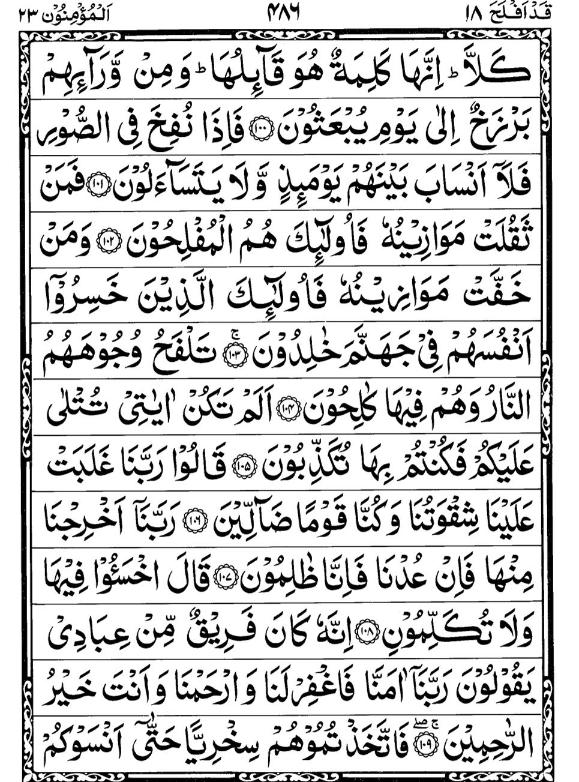 قَدْ اَفْلَحَ ١٨ ٤٨٦ اَلْمُؤْمِنُوْن ٢٣
كَلَّا ؕ اِنَّهَا كَلِمَةٌ هُوَ قَآىِٕلُهَا ؕ وَ مِنْ وَّرَآىِٕهِمْ
بَرْزَخٌ اِلٰى يَوْمِ يُبْعَثُوْنَ ﴿١٠٠﴾ فَاِذَا نُفِخَ فِى الصُّوْرِ
فَلَاۤ اَنْسَابَ بَيْنَهُمْ يَوْمَىِٕذٍ وَّ لَا يَتَسَآءَلُوْنَ ﴿١٠١﴾ فَمَنْ
ثَقُلَتْ مَوَازِيْنُهٗ فَاُولٰٓىِٕكَ هُمُ الْمُفْلِحُوْنَ ﴿١٠٢﴾ وَ مَنْ
خَفَّتْ مَوَازِيْنُهٗ فَاُولٰٓىِٕكَ الَّذِيْنَ خَسِرُوْۤا
اَنْفُسَهُمْ فِىْ جَهَنَّمَ خٰلِدُوْنَ ﴿١٠٣﴾ ۚ تَلْفَحُ وُجُوْهَهُمُ
النَّارُ وَهُمْ فِيْهَا كَالِحُوْنَ ﴿١٠٤﴾ اَلَمْ تَكُنْ اٰيٰتِىْ تُتْلٰى
عَلَيْكُمْ فَكُنْتُمْ بِهَا تُكَذِّبُوْنَ ﴿١٠٥﴾ قَالُوْا رَبَّنَا غَلَبَتْ
عَلَيْنَا شِقْوَتُنَا وَكُنَّا قَوْمًا ضَآلِّيْنَ ﴿١٠٦﴾ رَبَّنَاۤ اَخْرِجْنَا
مِنْهَا فَاِنْ عُدْنَا فَاِنَّا ظٰلِمُوْنَ ﴿١٠٧﴾ قَالَ اخْسَـُٔوْا فِيْهَا
وَلَا تُكَلِّمُوْنِ ﴿١٠٨﴾ اِنَّهٗ كَانَ فَرِيْقٌ مِّنْ عِبَادِىْ
يَقُوْلُوْنَ رَبَّنَاۤ اٰمَنَّا فَاغْفِرْ لَنَا وَ ارْحَمْنَا وَ اَنْتَ خَيْرُ
الرّٰحِمِيْنَ ﴿١٠٩﴾ ۚۖ فَاتَّخَذْتُمُوْهُمْ سِخْرِيًّا حَتّٰۤى اَنْسَوْكُمْ